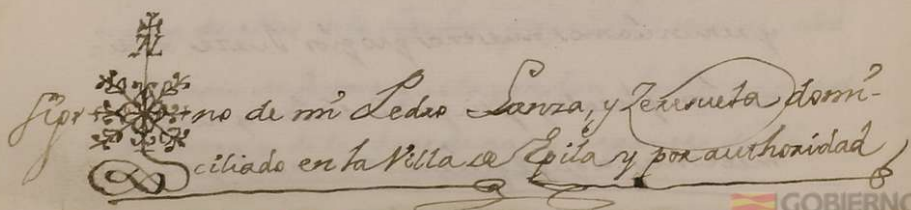 Sig✠no de mi Pedro Lanza, y Zerrueta domi-
ciliado en la Villa de Epila y por authoridad
GOBIERNO